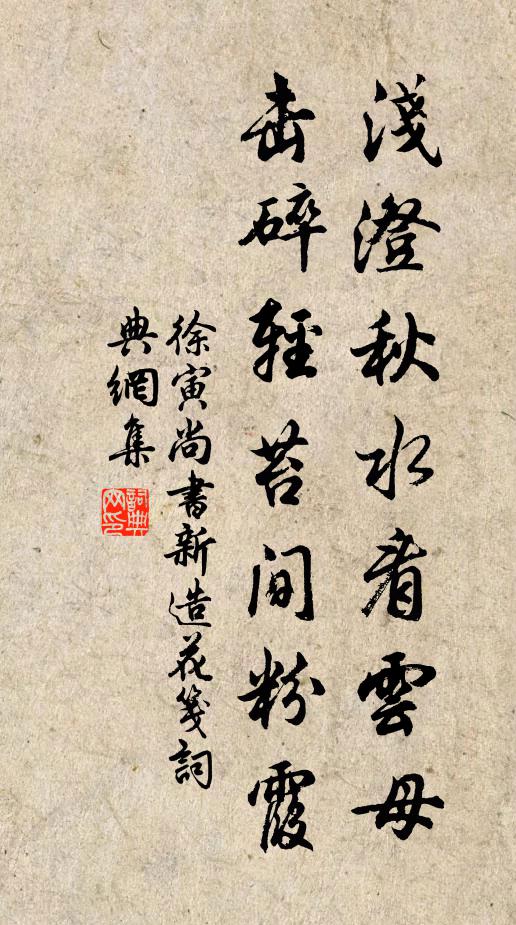 淺澄秋水看雲母
击碎輕苔間粉霞
徐寅尚書新造花箋詞
典網集
詞典
网印